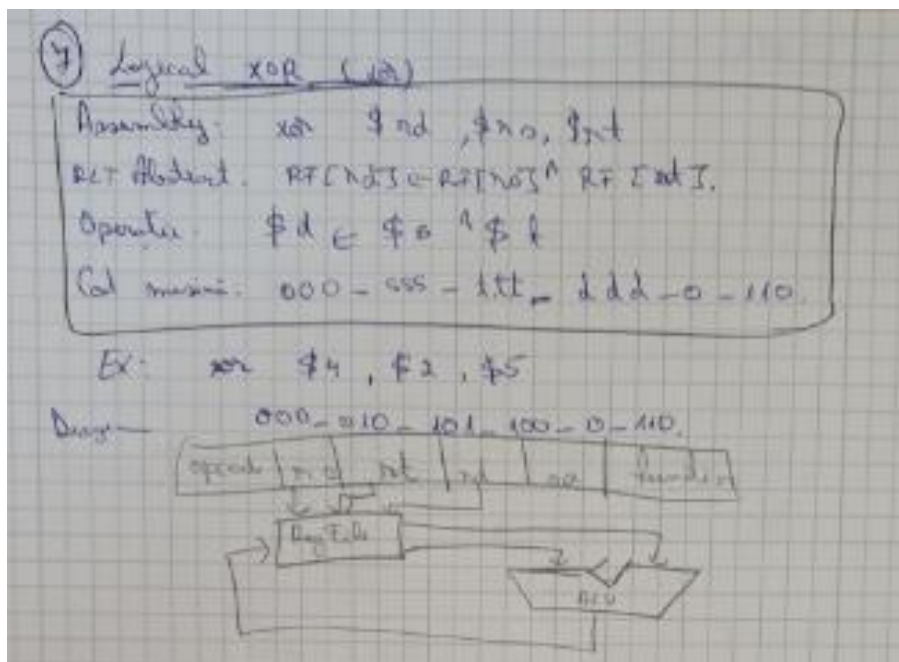 7 Logical XOR (xor)
Assembly: xor $rd, $rs, $rt
RLT Abstract. RF[rd] ← RF[rs] ^ RF[rt].
$d ← $s ^ $t
Cod 000 - sss - ttt - ddd - 0 - 110.
Ex: xor $4, $2, $5
000 - 010 - 101 - 100 - 0 - 110.
opcode rs rt rd sa
RegFile
ALU